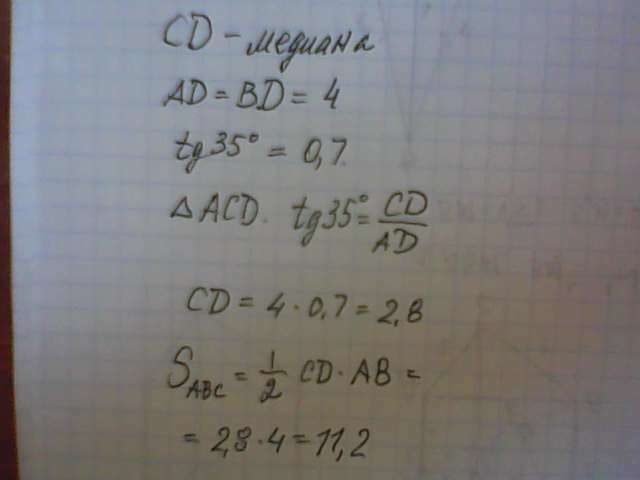 CD - медиана
AD = BD = 4
tg 35° = 0,7
△ ACD. tg 35° = CD/AD
CD = 4 · 0,7 = 2,8
S_ABC = 1/2 CD · AB =
= 2,8 · 4 = 11,2